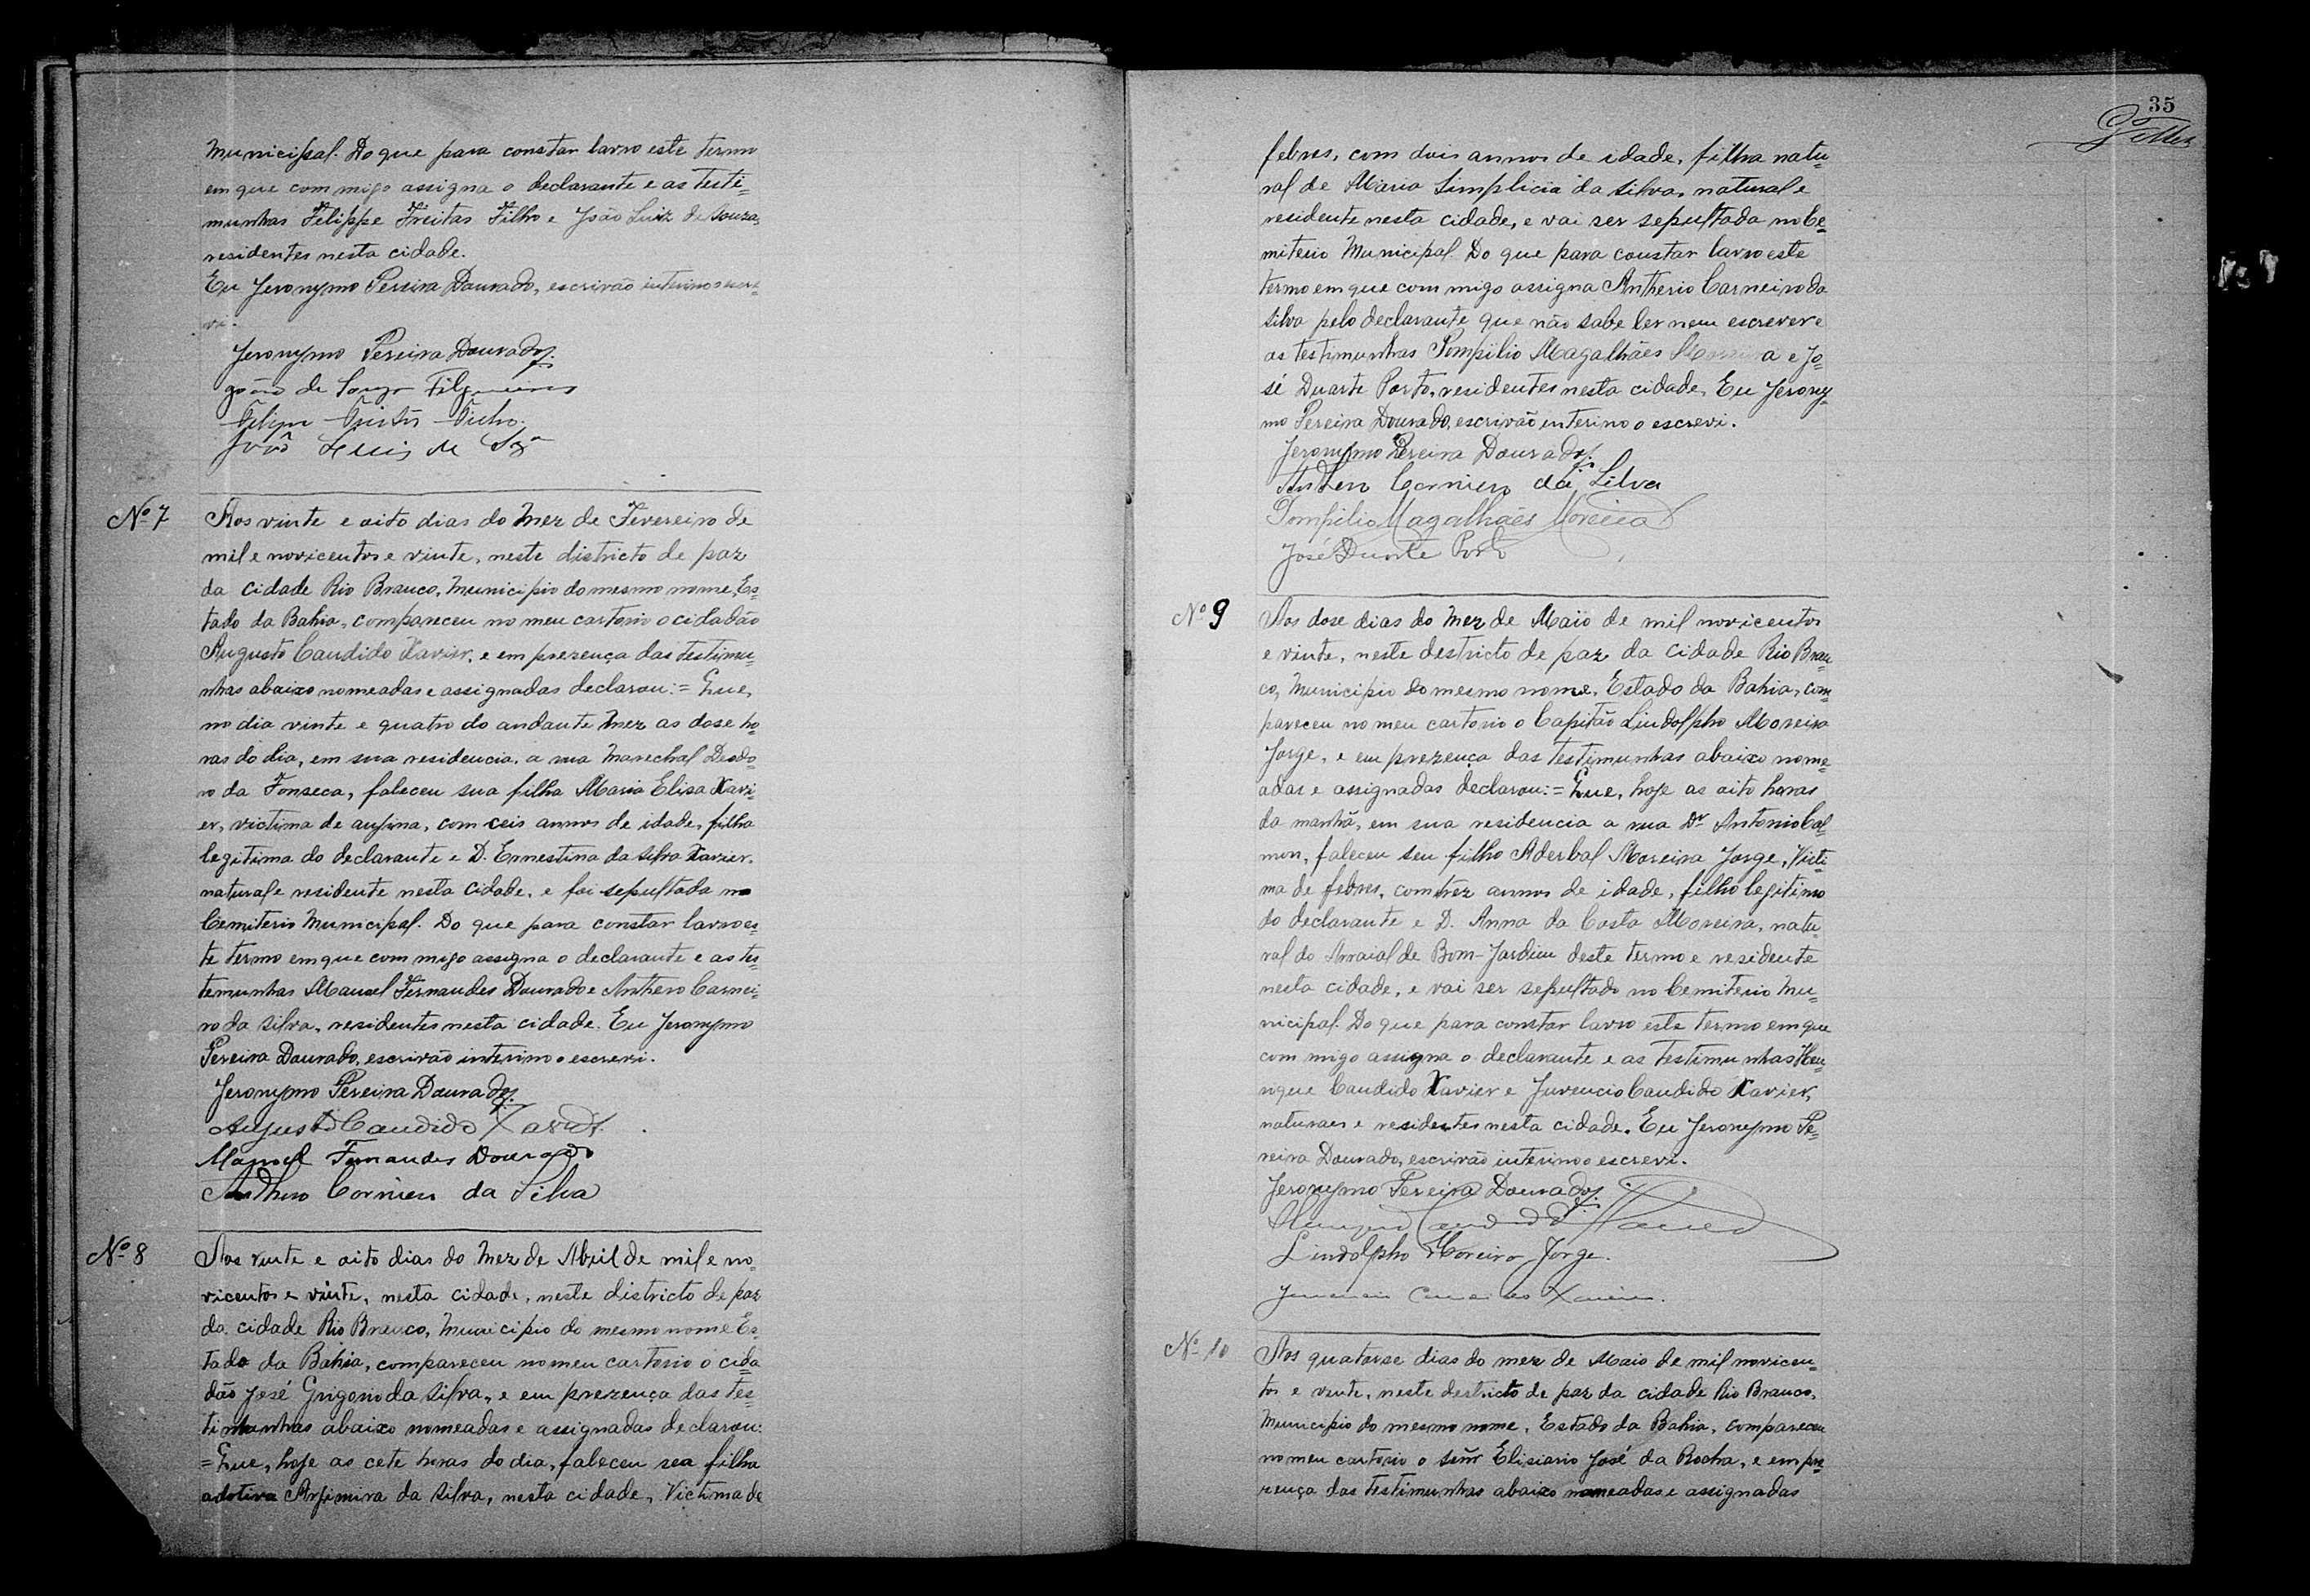 Municipal. Do que para constar lavro este termo
em que com migo assigna o declarante e as teste=
munhas Felippe Freitas Filho e João Luiz de Souza,
residentes nesta cidade.
Eu Jeronymo Pereira Dourado, escrivão interino o escre=
vi.
Jeronymo Pereira Dourado
João de Souza Filgueiras
Felipe Freitas Filho.
João Luis de Sza
Nº 7
Aos vinte e oito dias do Mez de Fevereiro de
mil e novicentos e vinte, neste districto de paz
da cidade Rio Branco, Municipio do mesmo nome, Es=
tado da Bahia, compareceu no meu cartorio o cidadão
Augusto Candido Xavier, e em prezença das testimu=
nhas abaixo nomeadas e assignadas declarou:= Que,
no dia vinte e quatro do andante Mez as dose ho=
ras do dia, em sua residencia, a rua Marechal Deodo=
ro da Fonseca, faleceu sua filha Maria Elisa Xavi=
er, victima de angina, com ceis annos de idade, filha
legitima do declarante e D. Ernestina da Silva Xavier,
natural e residente nesta cidade, e foi sepultada no
Cemiterio Municipal. Do que para constar lavro es=
te termo em que com migo assigna o declarante e as tes=
temunhas Manoel Fernandes Dourado e Anthero Carnei=
ro da Silva, residentes nesta cidade. Eu Jeronymo
Pereira Dourado, escrivão interino o escrevi.
Jeronymo Pereira Dourado
Augusto Candido Xavier.
Manoel Fernandes Dourado
Anthero Carneiro da Silva
Nº 8
Aos vinte e oito dias do Mez de Abril de mil e no=
vicentos e vinte, nesta cidade, neste districto de paz
da cidade Rio Branco, Municipio do mesmo nome Es=
tado da Bahia, compareceu no meu cartorio o cida=
dão José Grigorio da Silva, e em prezença das tes=
timunhas abaixo nomeadas e assignadas declarou:
= Que, hoje as cete horas do dia, faleceu sua filha
adotiva Argimira da Silva, nesta cidade, Victima de
35
febres, com dois annos de idade, filha natu=
ral de Maria Simplicia da Silva, natural e
residente nesta cidade, e vai ser sepultada no Ce=
miterio Municipal. Do que para constar lavro este
termo em que com migo assigna Antherio Carneiro da
Silva pelo declarante que não sabe ler nem escrever e
as testimunhas Pompilio Magalhães Moreira e Jo=
sé Duarte Porto, residentes nesta cidade, Eu Jerony=
mo Pereira Dourado, escrivão interino o escrevi.
Jeronymo Pereira Dourado
Anthero Carneiro da Silva
Pompilio Magalhães Moreira
José Duarte Porto
Nº 9
Aos dose dias do Mez de Maio de mil novicentos
e vinte, neste destricto de paz da cidade Rio Bran=
co, Municipio do mesmo nome, Estado da Bahia, com=
pareceu no meu cartorio o Capitão Lindolpho Moreira
Jorge, e em prezença das testimunhas abaixo nome=
adas e assignadas declarou:= Que, hoje as oito horas
da manhã, em sua residencia a rua Dr Antonio Cal=
mon, faleceu seu filho Aderbal Moreira Jorge, Victi=
ma de febres, com trez annos de idade, filho legitimo
do declarante e D. Anna da Costa Moreira, natu=
ral do Arraial de Bom-Jardim deste termo e residente
nesta cidade, e vai ser sepultado no Cemiterio Mu=
nicipal. Do que para constar lavro este termo em que
com migo assigna o declarante e as testimunhas Hen=
rique Candido Xavier e Juvencio Candido Xavier,
naturaes e residentes nesta cidade. Eu Jeronymo Pe=
reira Dourado, escrivão interino o escrevi.
Jeronymo Pereira Dourado
Candido Xavier
Lindolpho Moreira Jorge.
Juvencio Candido Xavier.
Nº 10
Aos quatorse dias do mez de Maio de mil novicen=
tos e vinte, neste destricto de paz da cidade Rio Branco,
Municipio do mesmo nome, Estado da Bahia, compareceu
no meu cartorio o Señr Elisiario José da Rocha, e em pre=
zença das testimunhas abaixo nomeadas e assignadas